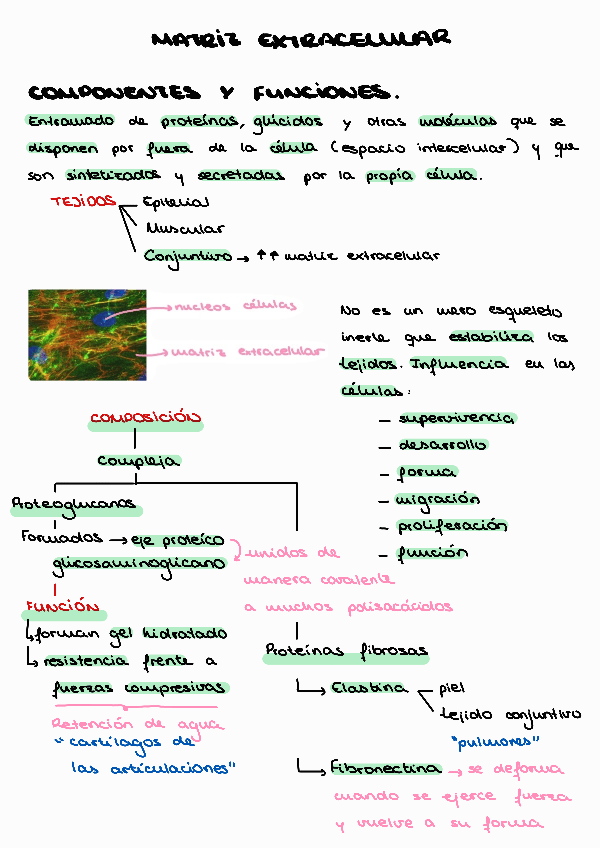 MATRIZ EXTRACELULAR
COMPONENTES Y FUNCIONES.
Entramado de proteínas, glúcidos y otras moléculas que se
disponen por fuera de la célula (espacio intercelular) y que
son sintetizados y secretadas por la propia célula.
TEJIDOS
Epitelial
Muscular
Conjuntivo → ↑↑ matriz extracelular
nucleos células
matriz extracelular
No es un mero esqueleto
inerte que estabiliza los
tejidos. Influencia en las
células:
- supervivencia
- desarrollo
- forma
- migración
- proliferación
- función
COMPOSICIÓN
Compleja
Proteoglucanos
Formados → eje proteíco
glicosaminoglicano
unidos de
manera covalente
a muchos polisacácidos
FUNCIÓN
↳ forman gel hidratado
↳ resistencia frente a
fuerzas compresivas
Retención de agua
"cartílagos de
las articulaciones"
Proteínas fibrosas
↳ Elastina
piel
tejido conjuntivo
"pulmones"
↳ Fibronectina → se deforma
cuando se ejerce fuerza
y vuelve a su forma